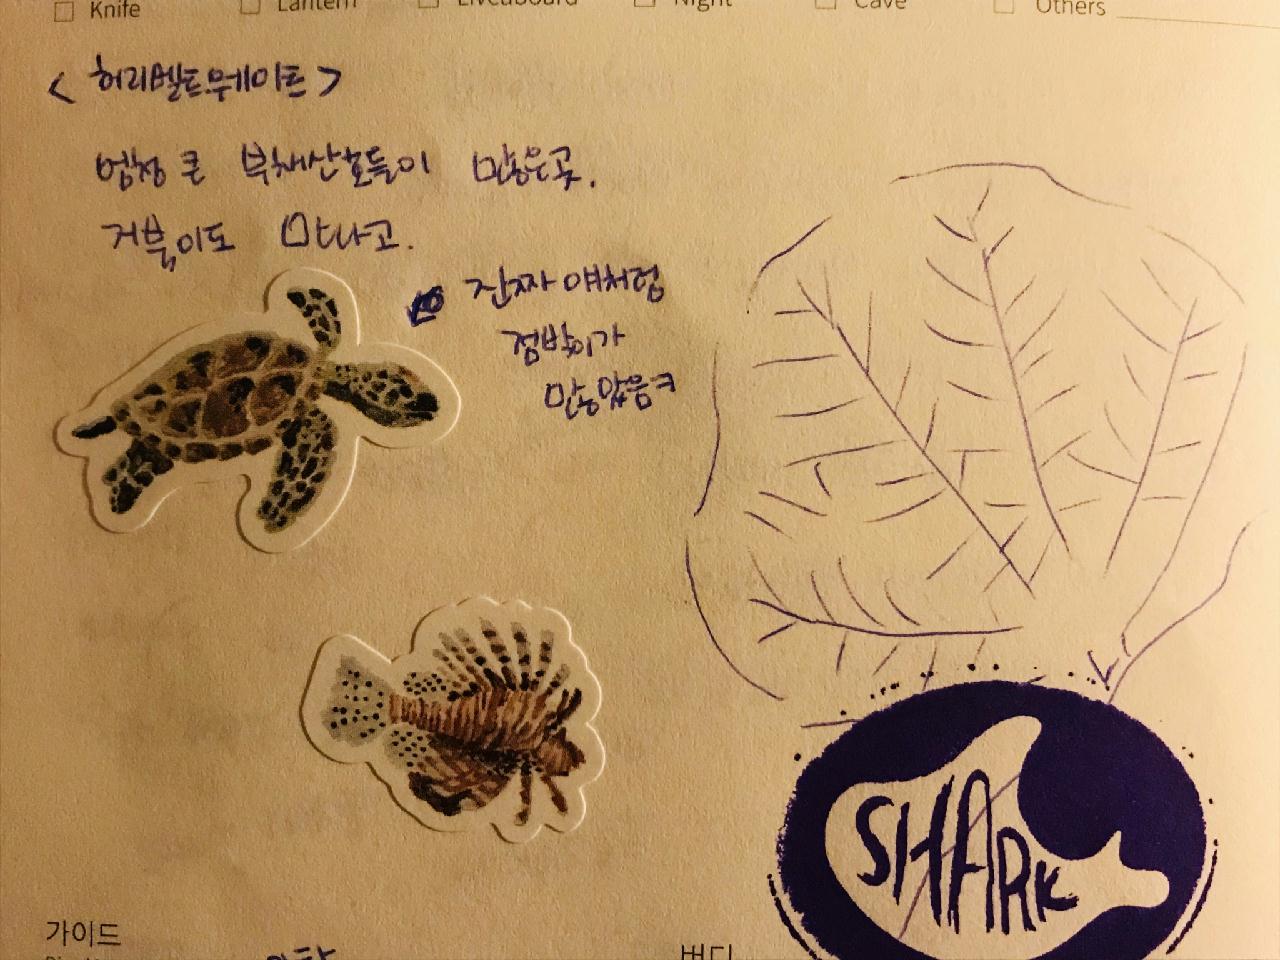 Knife Lantern Liveaboard Night Cave Others
< 허리벨트웨이트 >
엄청 큰 부채산호들이 많은곳.
거북이도 만나고.
진짜 얘처럼
점박이가
많았음ㅋ
SHARK
가이드
버디